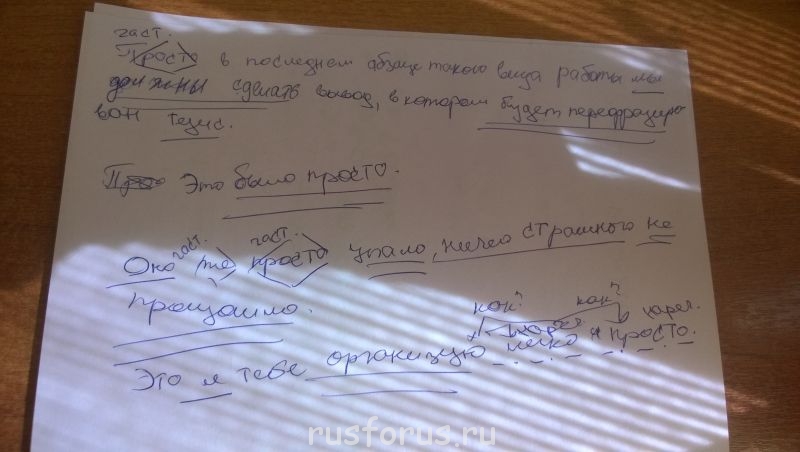 част.
Просто в последнем абзаце такого вида работы мы
должны сделать вывод, в котором будет перефразиро
ван тезис.
Это было просто.
част. част.
Оно же просто упало, ничего страшного не
произошло.
как? как?
нареч. нареч.
Это я тебе организую легко и просто.
rusforus.ru